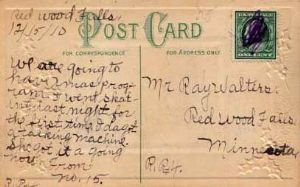 Red Wood Falls
12/15/10
POST CARD
FOR CORRESPONDENCE
FOR ADDRESS ONLY
We are going to
have Xmas prog-
ram. I went skat-
ing last night for
the first time I dag't
a talking machine.
She got it a going
now. From
no. 15.
Mr Ray Walters.
Red Wood Falls
Minnesota
R.R.4.
ONE CENT